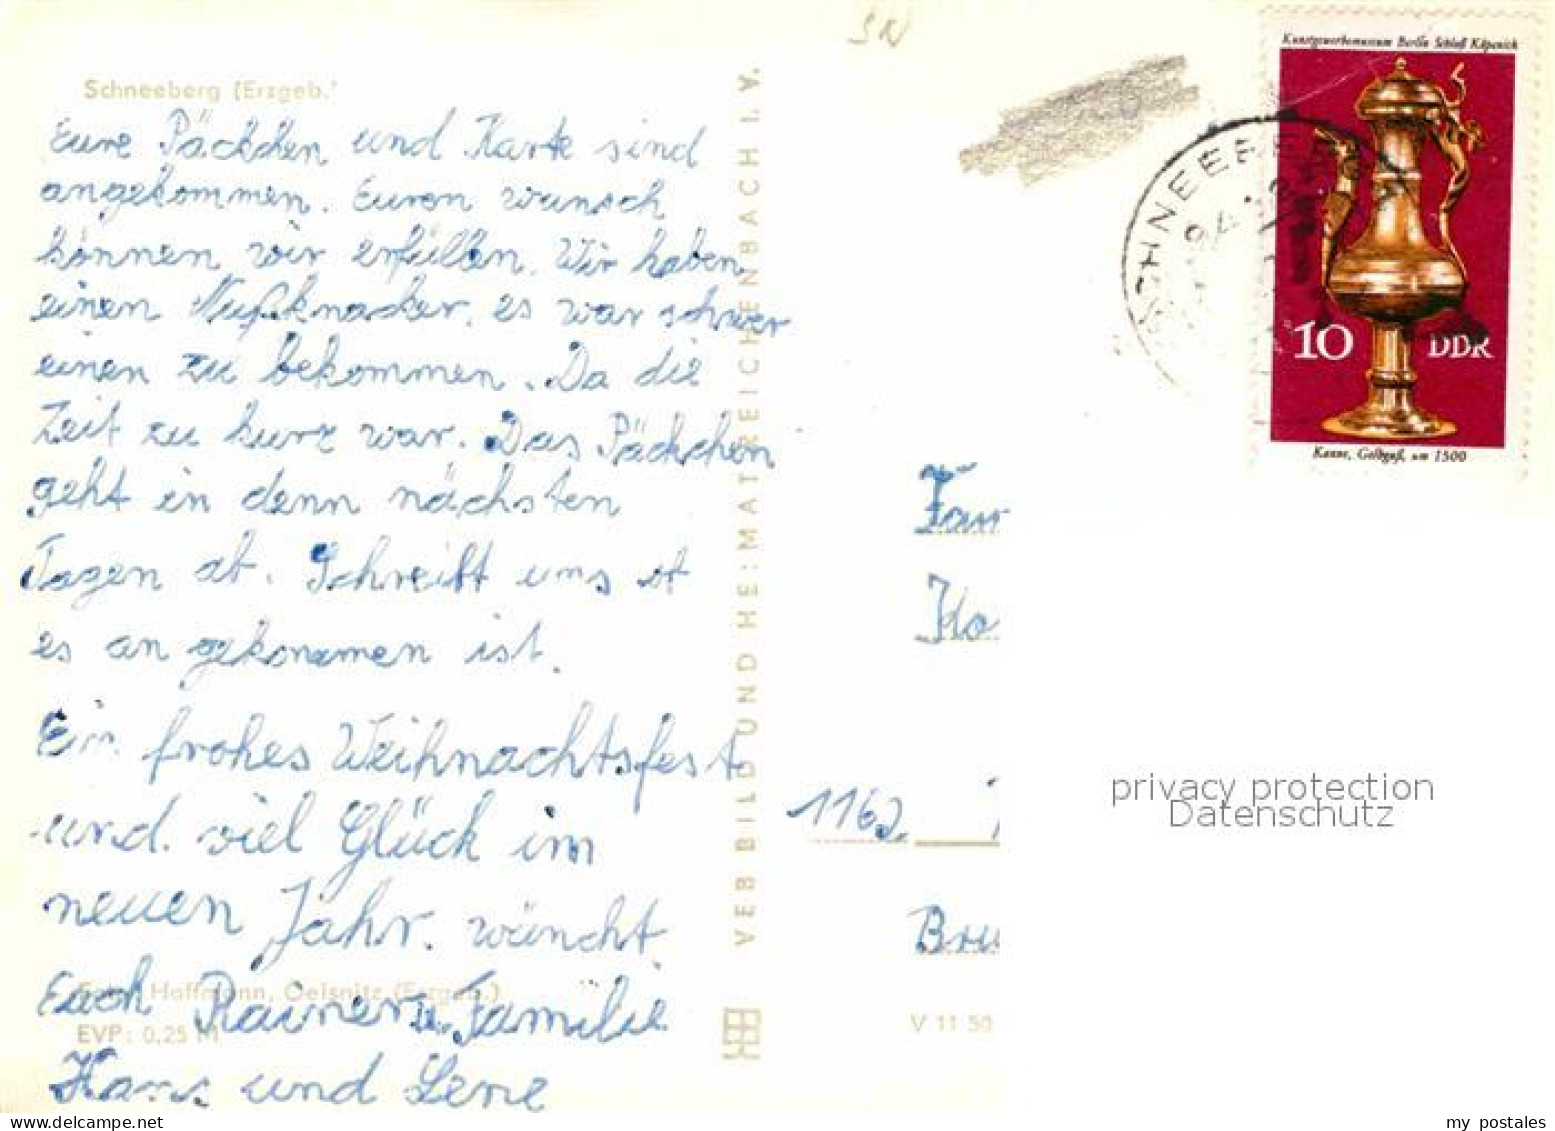 SN
Schneeberg (Erzgeb.)
Eure Päckchen und Karte sind
angekommen. Euren wunsch
können wir erfüllen. Wir haben
einen Nußknacker. es war schwer
einen zu bekommen. Da die
Zeit zu kurz war. Das Päckchen
geht in denn nächsten
Tagen ab. Schreibt uns ob
es an gekommen ist.
Ein frohes Weihnachtsfest
und viel Glück im
neuen Jahr. wüncht
Euch Rainer u. Familie
Hans und Lene
Foto: Hoffmann, Oelsnitz (Erzgeb.)
EVP: 0,25 M
VEB BILD UND HEIMAT REICHENBACH I. V.
V 11 50
SCHNEEBERG
Kunstgewerbemuseum Berlin Schloß Köpenick
10 DDR
Kanne, Gelbguß, um 1500
Fam
1162
Bru
privacy protection
Datenschutz
my postales